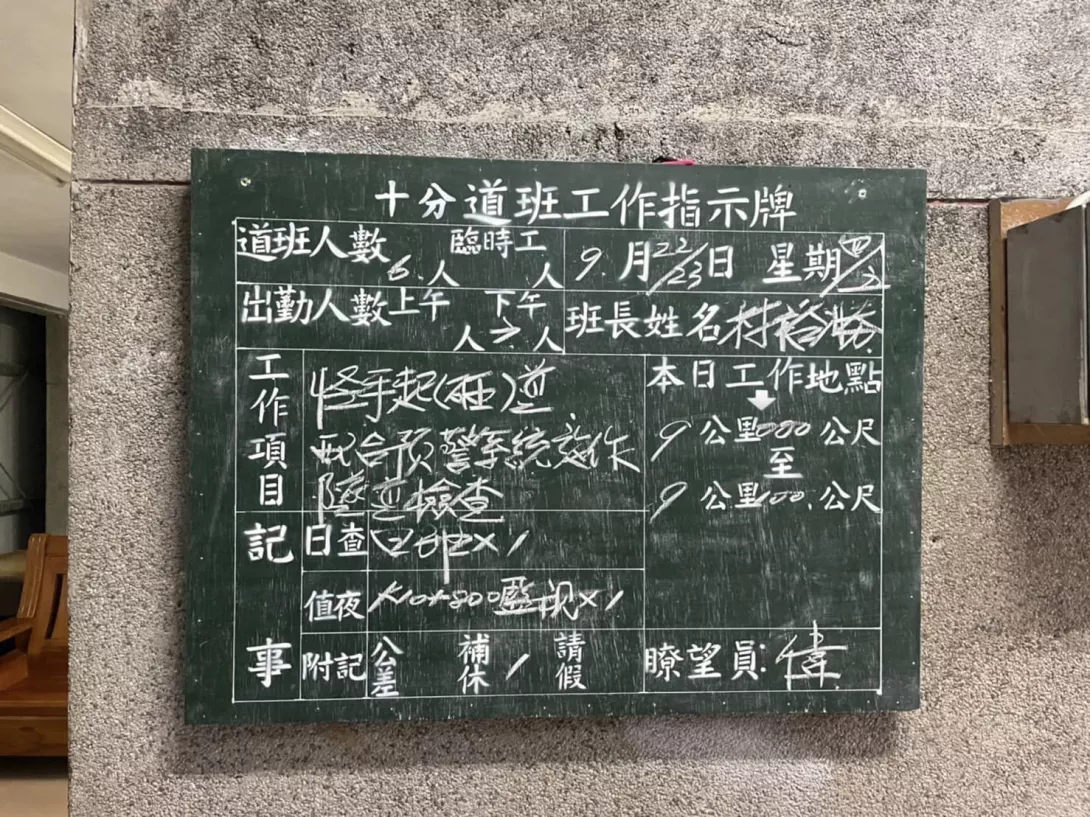 十分道班工作指示牌
道班人數 6人 臨時工 人 9月22/23日 星期四/
出勤人數 上午 人 下午 人 班長姓名
工作項目
怪手起(
配合預警系統
檢查
本日工作地點
9公里000公尺
至
9公里100公尺
記事
日查 x1
值夜 K10+800監視x1
附記 公差 補休 1 請假
瞭望員:偉